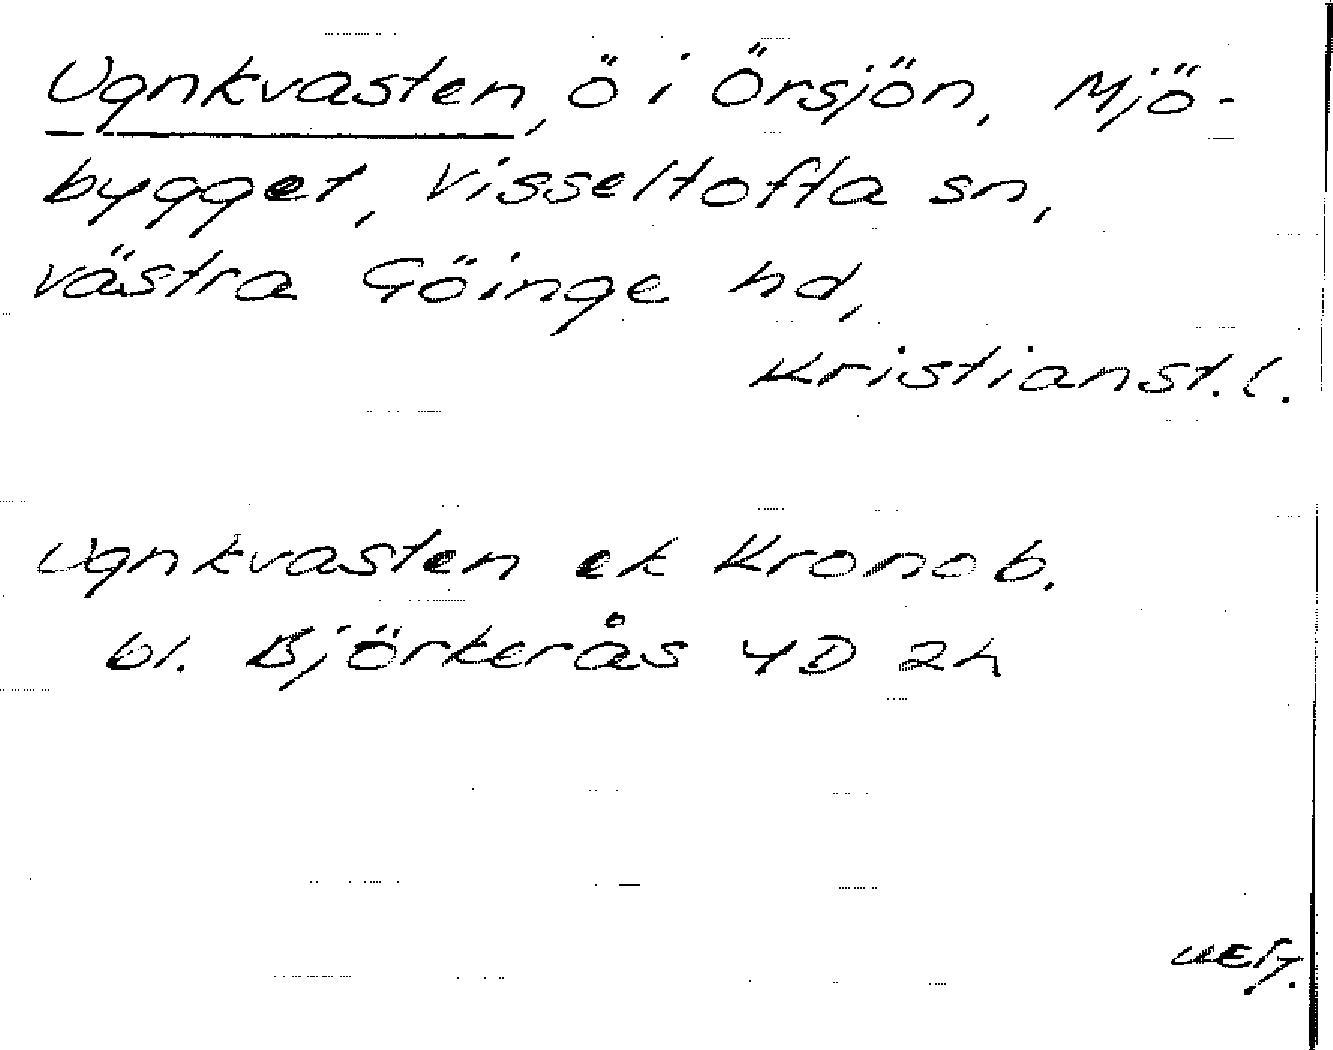 Ugnkvasten, ö i Örsjön, Mjö-
bygget, Visseltofta sn,
västra Göinge hd,
Kristianst. l.
Ugnkvasten ek Kronob.
bl. Björkerås 4D 2h